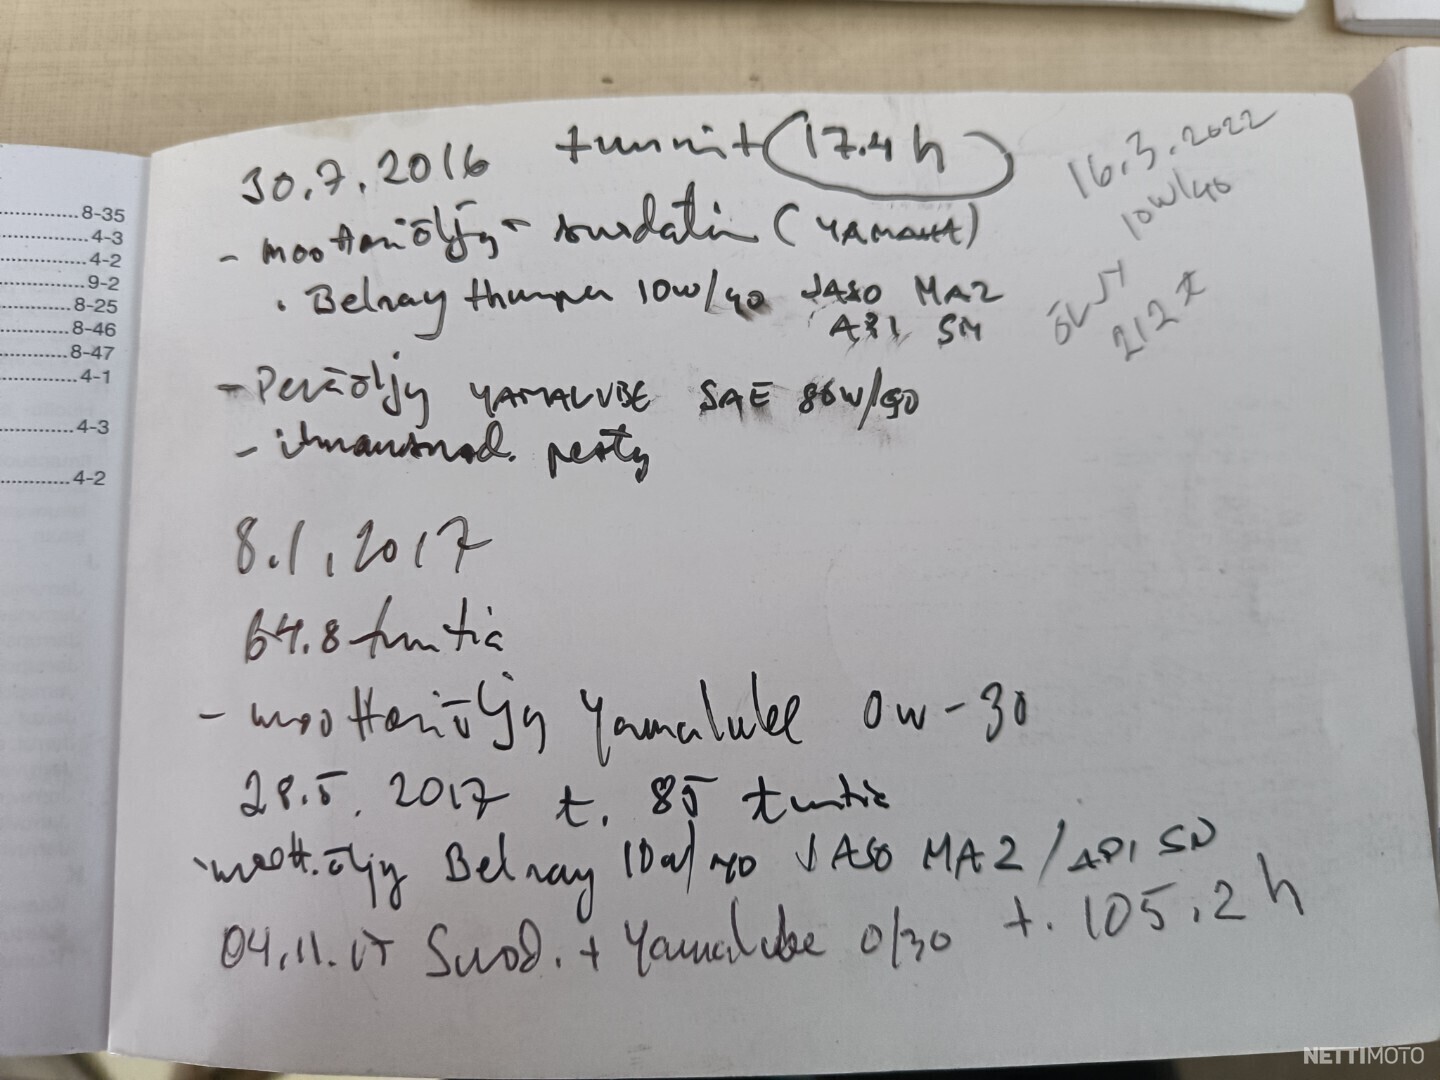 8-35
4-3
4-2
9-2
8-25
8-46
8-47
4-1
4-3
4-2
30.7.2016 tunnit 17.4 h
- moottoriöljy + suodatin (YAMAHA)
. Belray thumper 10w/40 JASO MA2
API SN
- Peräöljy YAMALUBE SAE 80W/90
- ilmansuod. pesty
8.1.2017
64.8 tuntia
- moottoriöljy Yamalube 0w-30
28.5.2017 t. 85 tuntia
moott.öljy Belray 10w/40 JASO MA2/API SN
04.11.17 Suod. + Yamalube 0/30 t. 105.2 h
16.3.2022
10w/40
ÖLJYT
212 t
NETTIMOTO